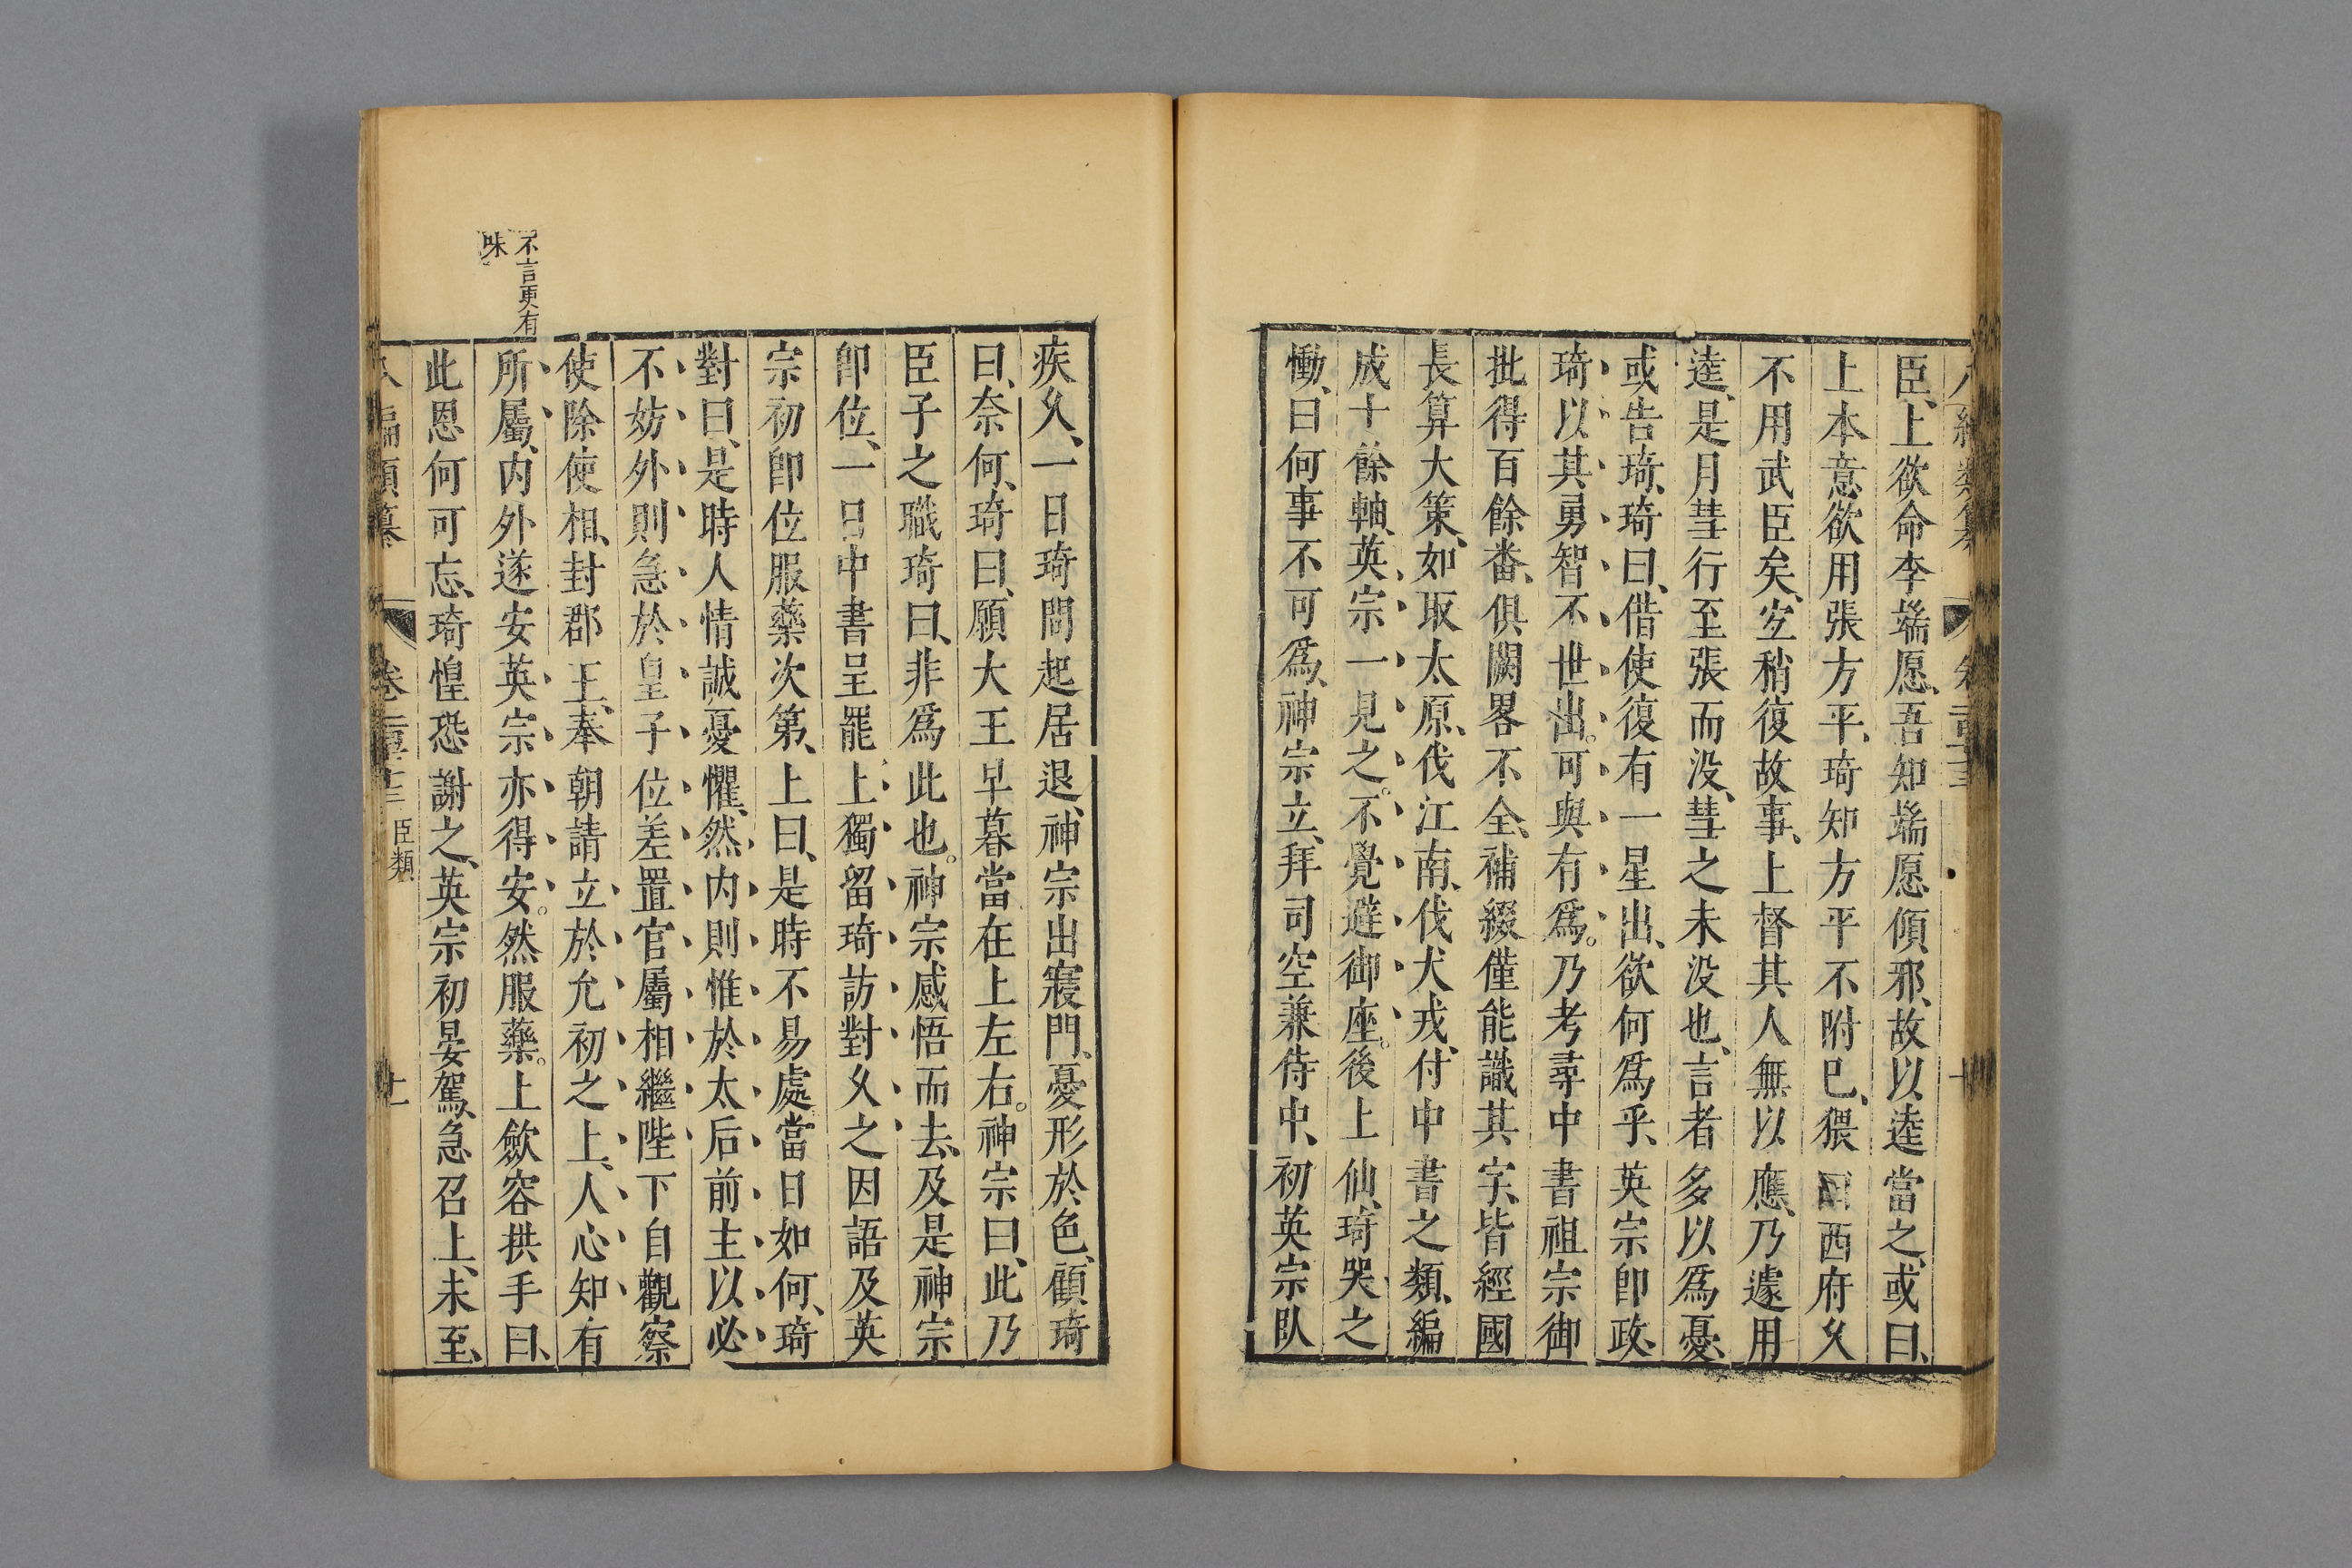 臣、上欲命李端愿、吾知端愿傾邪、故以逵當之、或曰、
上本意欲用張方平、琦知方平不附已、猥曰西府乆
不用武臣矣、宐稍復故事、上督其人無以應、乃遽用
逵、是月彗行至張而没、彗之未没也、言者多以爲憂、
或告琦、琦曰、借使復有一星出、欲何爲乎、英宗即政、
琦以其勇智不世出。可與有爲。乃考尋中書祖宗御
批得百餘番、俱闕畧不全、補綴僅能識其字、皆經國
長算大策、如取太原、伐江南、伐犬戎、付中書之類、編
成十餘軸、英宗一見之。不覺避御座。後上仙、琦哭之
慟、曰何事不可爲、神宗立、拜司空兼侍中、初英宗臥
疾乆、一日琦問起居退、神宗出寢門、憂形於色、顧琦
曰、奈何、琦曰、願大王早暮當在上左右。神宗曰、此乃
臣子之職琦曰、非爲此也。神宗感悟而去、及是神宗
卽位、一日中書呈罷上獨留琦訪對乆之因語及英
宗初卽位服藥次第、上曰、是時不易處當日如何、琦
對曰、是時人情誠憂懼、然内則惟於太后前主以必
不妨外則急於皇子位差置官屬相繼陛下自觀察
使除使相、封郡王、奉朝請立於允初之上、人心知有
所屬、内外遂安英宗亦得安。然服藥。上斂容拱手曰、
此恩何可忘、琦惶恐謝之、英宗初晏駕、急召上、未至、
不言更有
味
八編類纂 卷二百十三 臣類 十一